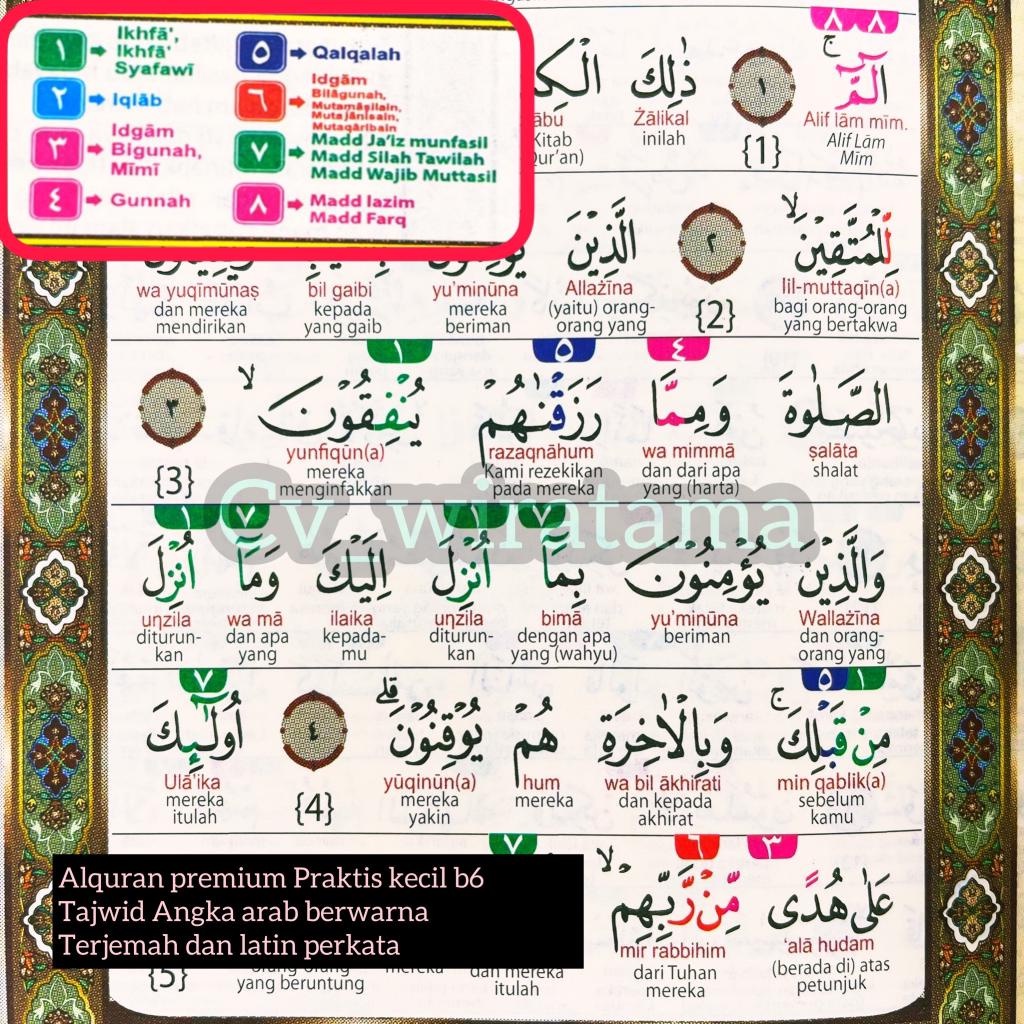 ١ Ikhfā', Ikhfā' Syafawī
٢ Iqlāb
٣ Idgām Bigunah, Mīmī
٤ Gunnah
٥ Qalqalah
٦ Idgām Bilāgunah, Mutamāṡilain, Mutajānisain, Mutaqāribain
٧ Madd Ja'iz munfasil Madd Silah Tawilah Madd Wajib Muttasil
٨ Madd lazim Madd Farq
٨ ٨
الۤمّۤ ۚ ١ ذٰلِكَ
Alif lām mīm. Żālikal ābu
Alif Lām Mīm {1} inilah Kitab Qur'an)
لِّلْمُتَّقِيْنَۙ ٢ الَّذِيْنَ
lil-muttaqīn(a) Allażīna yu'minūna bil gaibi wa yuqīmūnaṣ
bagi orang-orang yang bertakwa {2} (yaitu) orang-orang yang mereka beriman kepada yang gaib dan mereka mendirikan
٤ ٥ ١
الصَّلٰوةَ وَمِمَّا رَزَقْنٰهُمْ يُنْفِقُوْنَۙ ٣
ṣalāta wa mimmā razaqnāhum yunfiqūn(a)
shalat dan dari apa yang (harta) Kami rezekikan pada mereka mereka menginfakkan {3}
Cv_wiratama
٧ ١ ٧ ١
وَالَّذِيْنَ يُؤْمِنُوْنَ بِمَآ اُنْزِلَ اِلَيْكَ وَمَآ اُنْزِلَ
Wallażīna yu'minūna bimā unzila ilaika wa mā unzila
dan orang-orang yang beriman dengan apa yang (wahyu) diturun-kan kepada-mu dan apa yang diturun-kan
١ ٥ ٧
مِنْ قَبْلِكَۚ وَبِالْاٰخِرَةِ هُمْ يُوْقِنُوْنَۗ ٤ اُولٰۤىِٕكَ
min qablik(a) wa bil ākhirati hum yūqinūn(a) Ulā'ika
sebelum kamu dan kepada akhirat mereka mereka yakin {4} mereka itulah
٣ ٦ ٧
عَلٰى هُدًى مِّنْ رَّبِّهِمْۙ
'alā hudam mir rabbihim
(berada di) atas petunjuk dari Tuhan mereka dan mereka itulah mereka orang-orang yang beruntung {5}
Alquran premium Praktis kecil b6
Tajwid Angka arab berwarna
Terjemah dan latin perkata